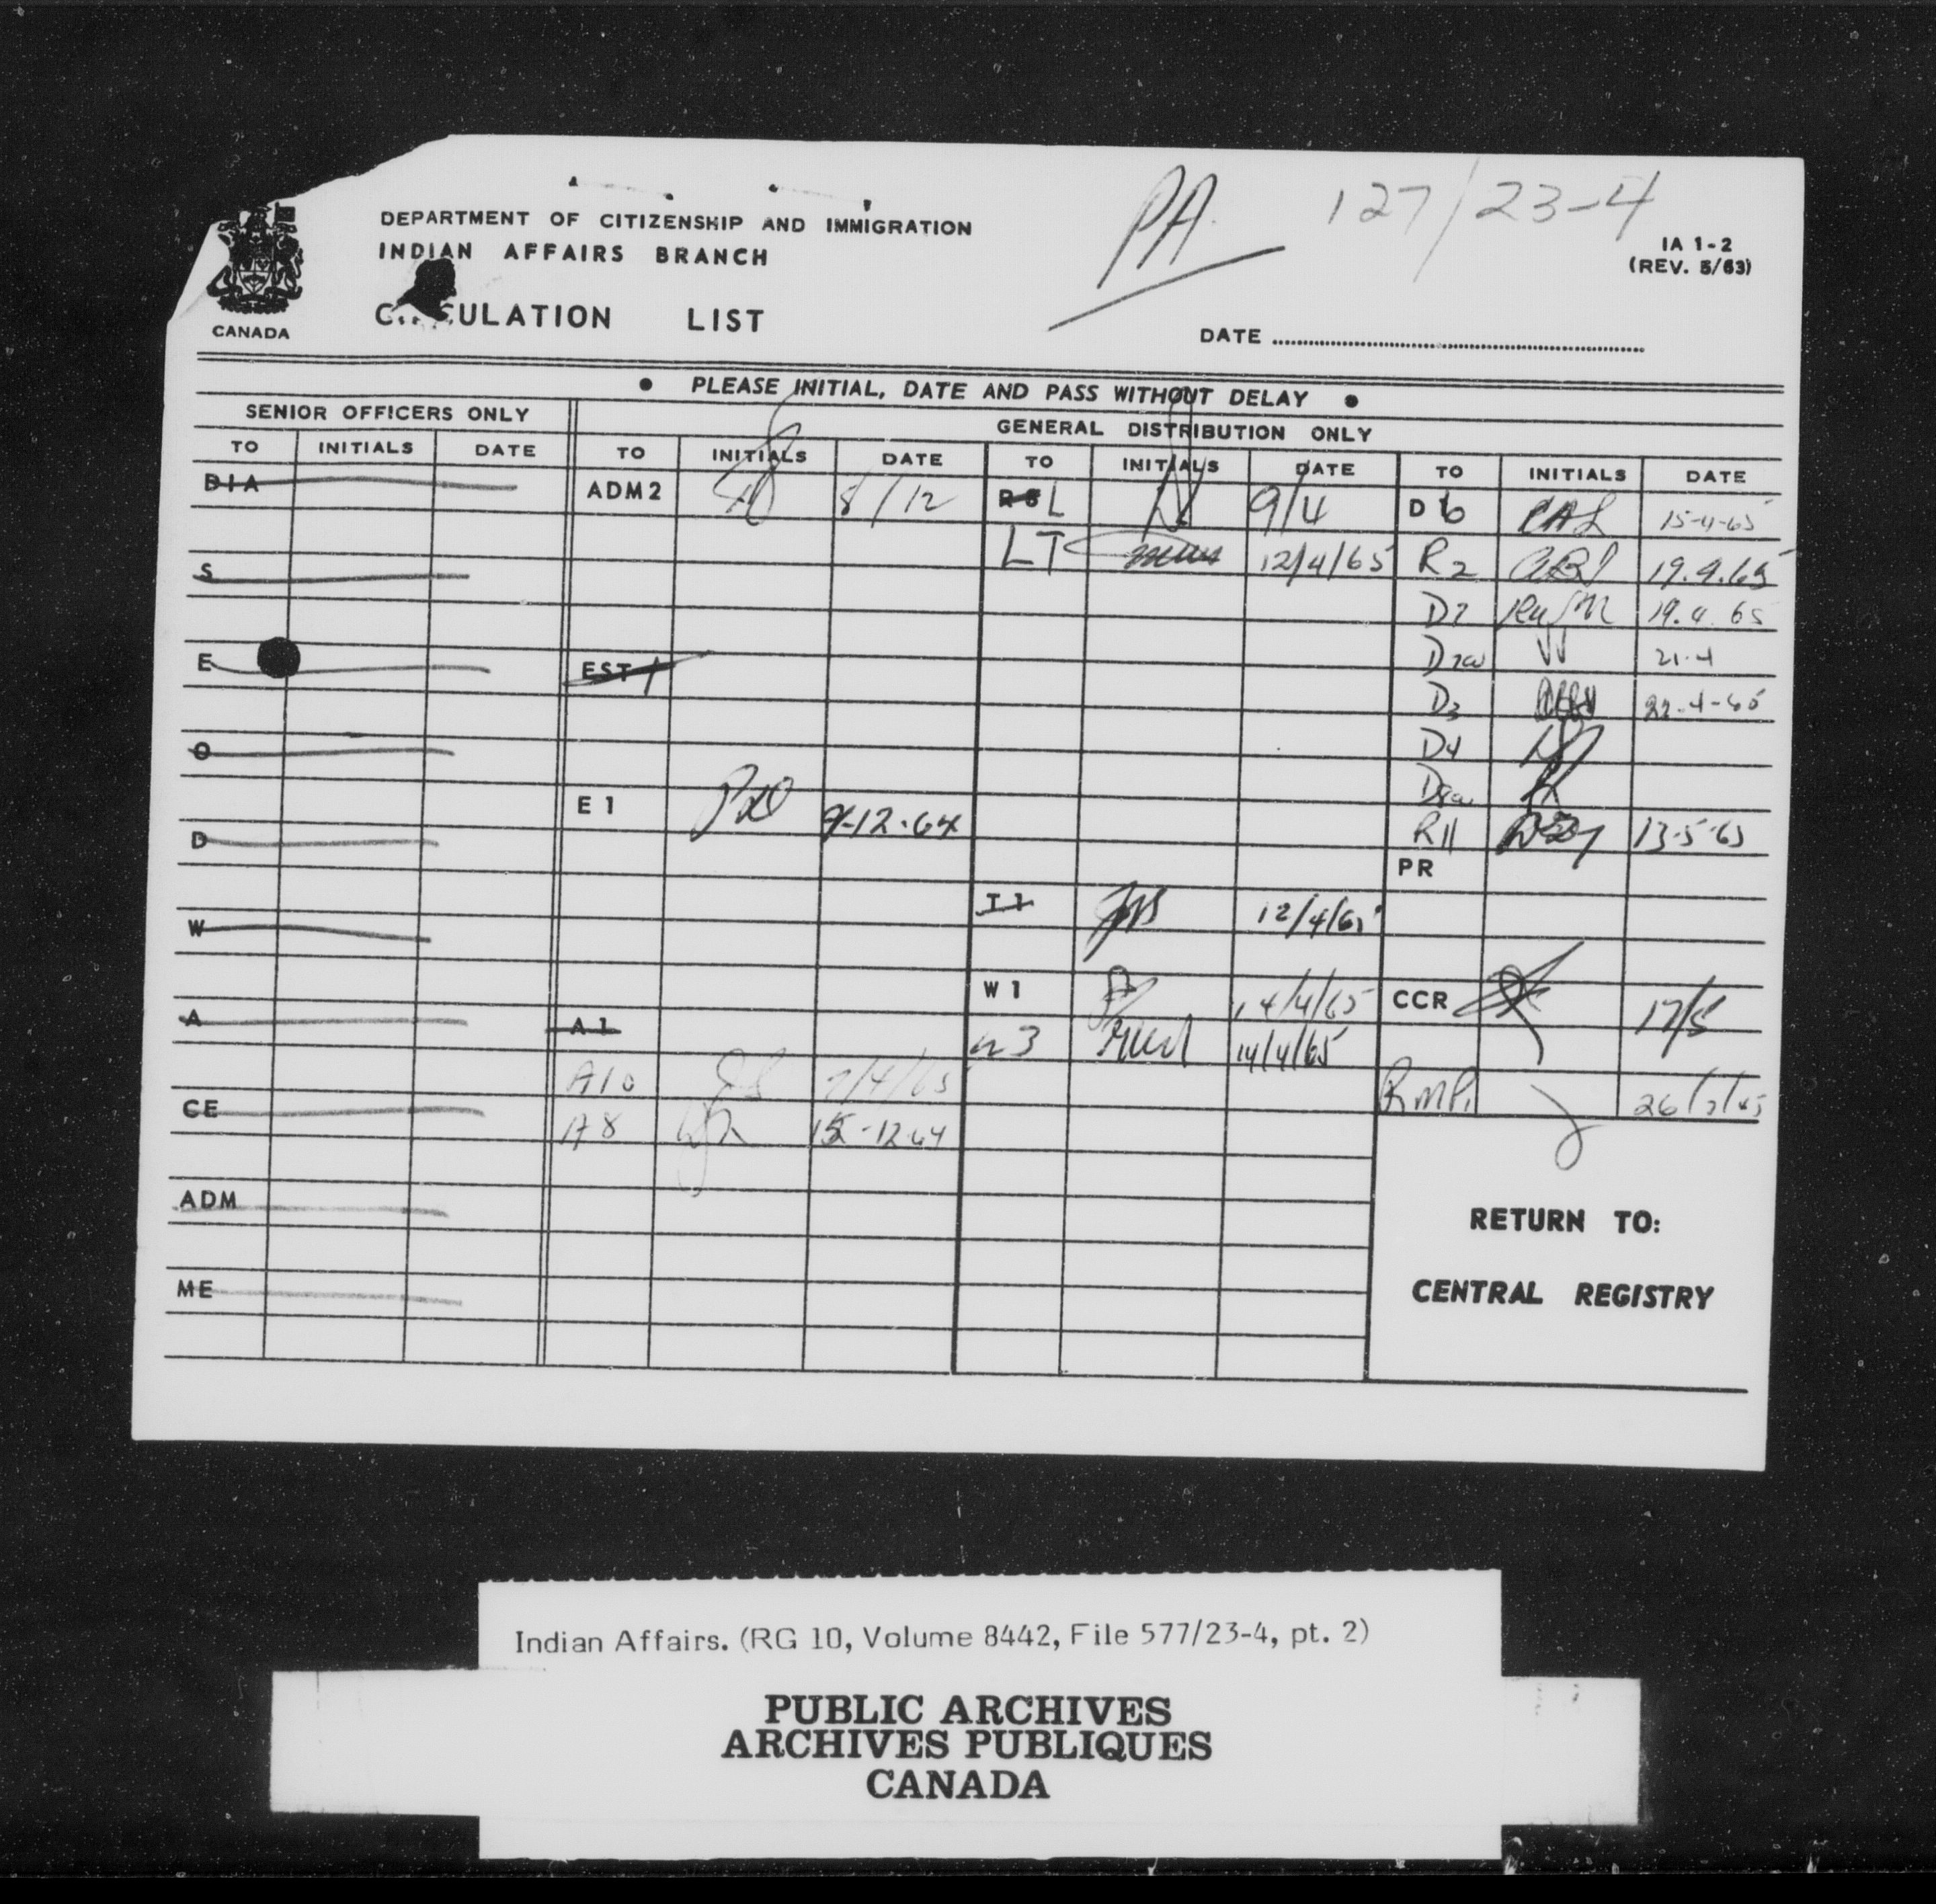 PA. 127/23-4
DEPARTMENT OF CITIZENSHIP AND IMMIGRATION
INDIAN AFFAIRS BRANCH
IA 1-2
(REV. 5/63)
CULATION LIST
CANADA
DATE
• PLEASE INITIAL, DATE AND PASS WITHOUT DELAY •
SENIOR OFFICERS ONLY
GENERAL DISTRIBUTION ONLY
TO INITIALS DATE TO INITIALS DATE TO INITIALS DATE TO INITIALS DATE
DIA ADM2 8/12 L 9/4 D6 CAL 15-4-65
LT 12/4/65 R2 19.4.65
S
D7 19.4.65
E EST 1
21-4
D3 22-4-65
O D4
E1 9-12-64
D R11 13-5-65
PR
T1 12/4/65
W
W1 14/4/65 CCR 17/5
A A1
3 14/4/65
A10 7/4/65
CE RMP.
A8 15-12-64
ADM
RETURN TO:
ME
CENTRAL REGISTRY
Indian Affairs. (RG 10, Volume 8442, File 577/23-4, pt. 2)
PUBLIC ARCHIVES
ARCHIVES PUBLIQUES
CANADA